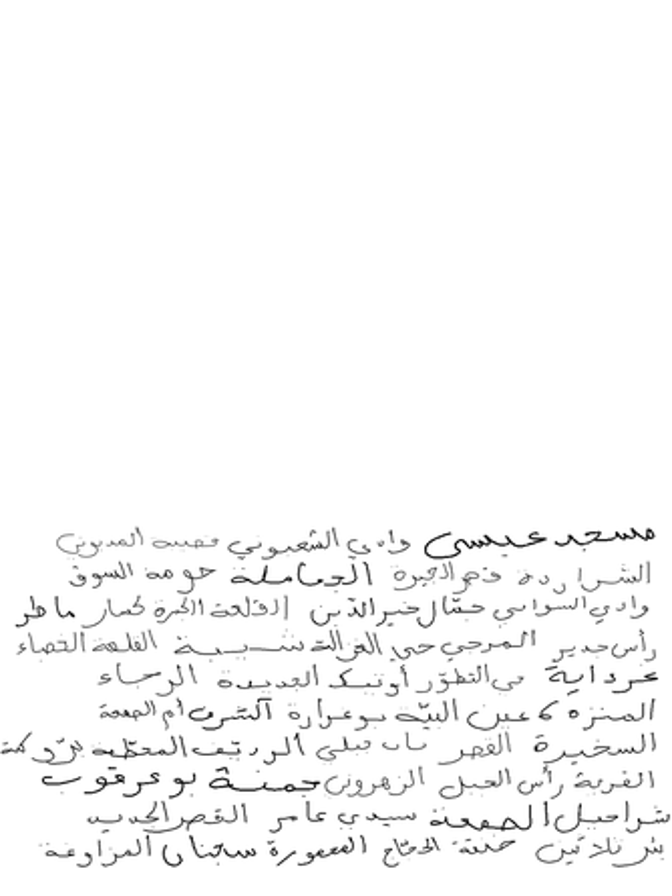 مسجد عيسى وادي الشعبوني قصيبة المديوني
الشرايردة فج الجبرة الجماملة حومة السوق
وادي السواسي جمّال خير الدين القلعة الكبرة كمار ماطر
رأس جدير المرجي حي الغزالة شبيبة القلعة القصاء
غرداية حي التطوّر أوتيك الجديدة الرجاء
المنزه 6 عين البيّة بوغرارة الشرف أم الصمعة
السخيرة القصر باب قبلي الرديف المحطة
القرية رأس الجبل الزهروني جمنة بوعرقوب
شراحيل الصمعة سيدي عامر القصر الجديد
بئر ثلاثين حفتة الحجّاج المعمورة سجنان المزاوغة